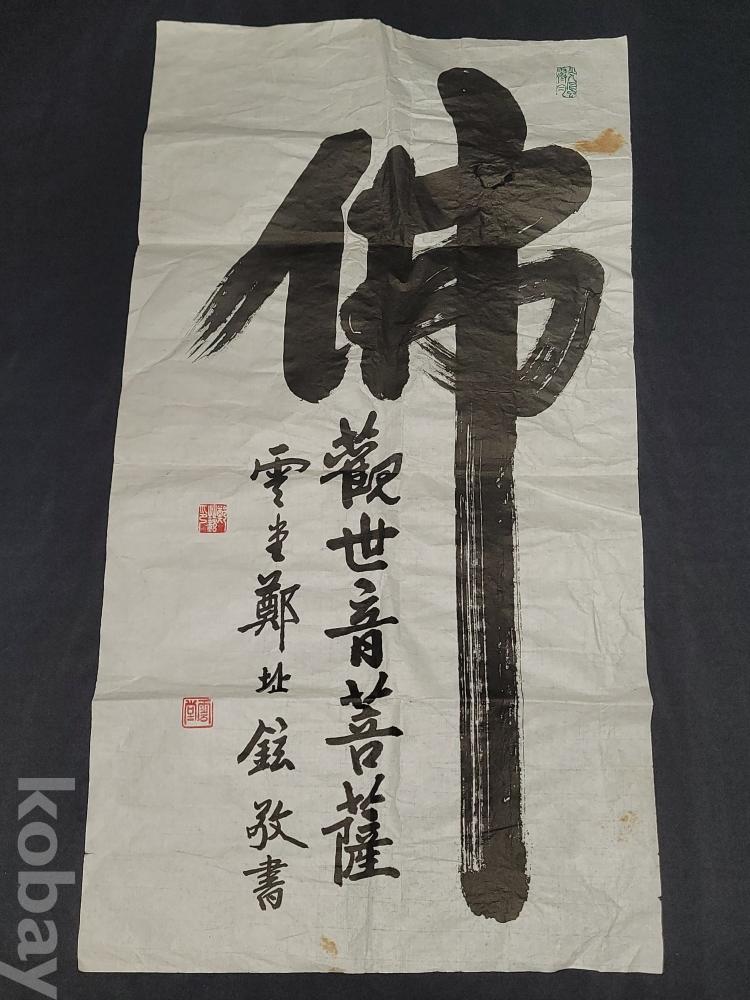 佛
觀世音菩薩
雲堂鄭址鉉敬書
kobay